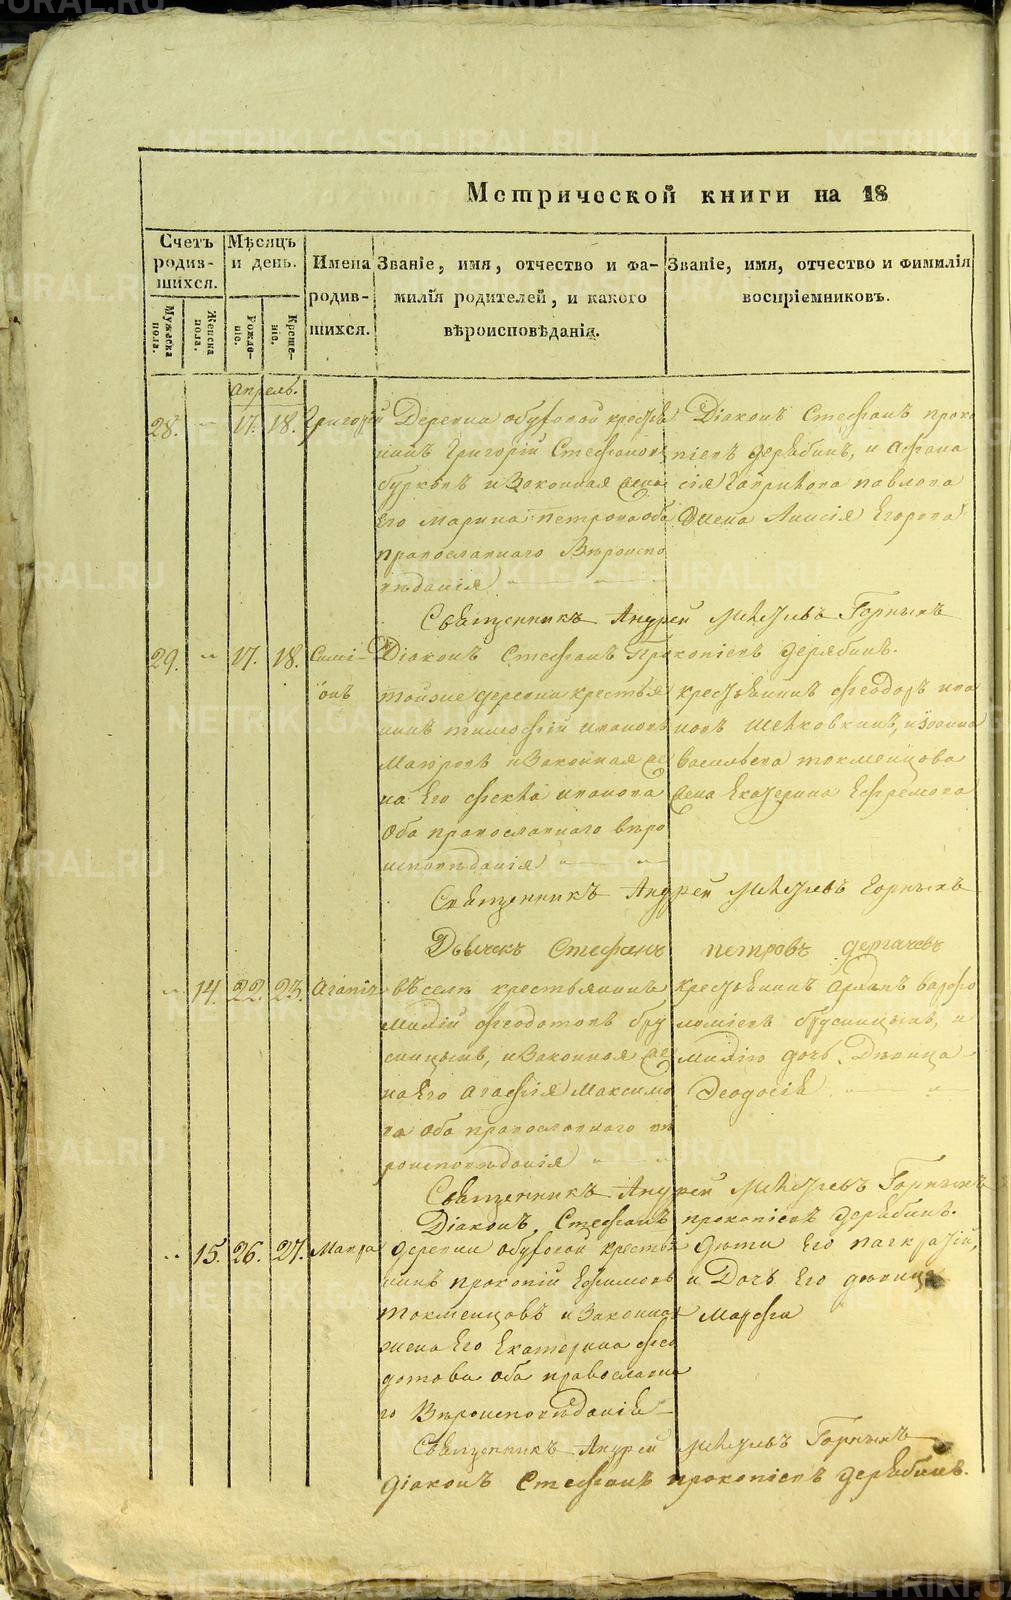 Метрической книги на 18
Счетъ родив- шихся.
Мѣсяцъ и день.
Имена родив- шихся.
Званіе, имя, отчество и фа- милія родителей, и какого вѣроисповѣданія.
Званіе, имя, отчество и фимилія воспріемниковъ.
Мужеска пола.
Женска пола.
Рожде- ніе.
Креще- ніе.
Апрель.
28. 17. 18. Григорій
Деревни обуховой крестья
нинъ Григорій Стефановъ
бурковъ и Законная жена
Его Марина петрова оба
православнаго Вѣроиспо
вѣданія
Діаконъ Стефанъ проко
піевъ дерябинъ, и афана
сія Гаврилова павлова
жена Анисія Егорова
Священникъ Андрей Горныхъ
29. 17. 18. Симі-
онъ
Діаконъ Стефанъ Прокопіевъ дерябинъ.
тойже деревни крестья
нинъ тимофій ивановъ
Мазуровъ и Законная же
на Его фекла иванова
Оба православнаго вѣро
исповѣданія
крестьянинъ феодоръ ива
новъ и Іоанна
Васильева токменцова
жена Екатерина Ефремова
Священникъ Андрей Горныхъ
Дьячекъ Стефанъ петровъ дергачевъ
14. 22. 23. Агапія
въ селѣ крестьянинъ
Милій феодотовъ бру
сницынъ, и Законная же
на Его агафія Максимо
ва Оба православнаго вѣ
роисповѣданія
крестьянинъ архипъ варфо
ломіевъ брусницынъ, и
милію дочь Дѣвица
Феодосія
Священникъ Андрей Горныхъ
Діаконъ, Стефанъ прокопіевъ дерябинъ.
15. 26. 27. Мавра
деревни обуховой крестья
нинъ прокопій Ефимовъ
токменцовъ и Законная
жена Его Екатерина фео
дотова оба православна
го Вѣроисповѣданія
дѣти Его панкратій,
и Дочь Его дѣвица
Марфа
Священникъ Андрей Горныхъ
діаконъ Стефанъ прокопіевъ дерябинъ.
METRIKI.GASO-URAL.RU